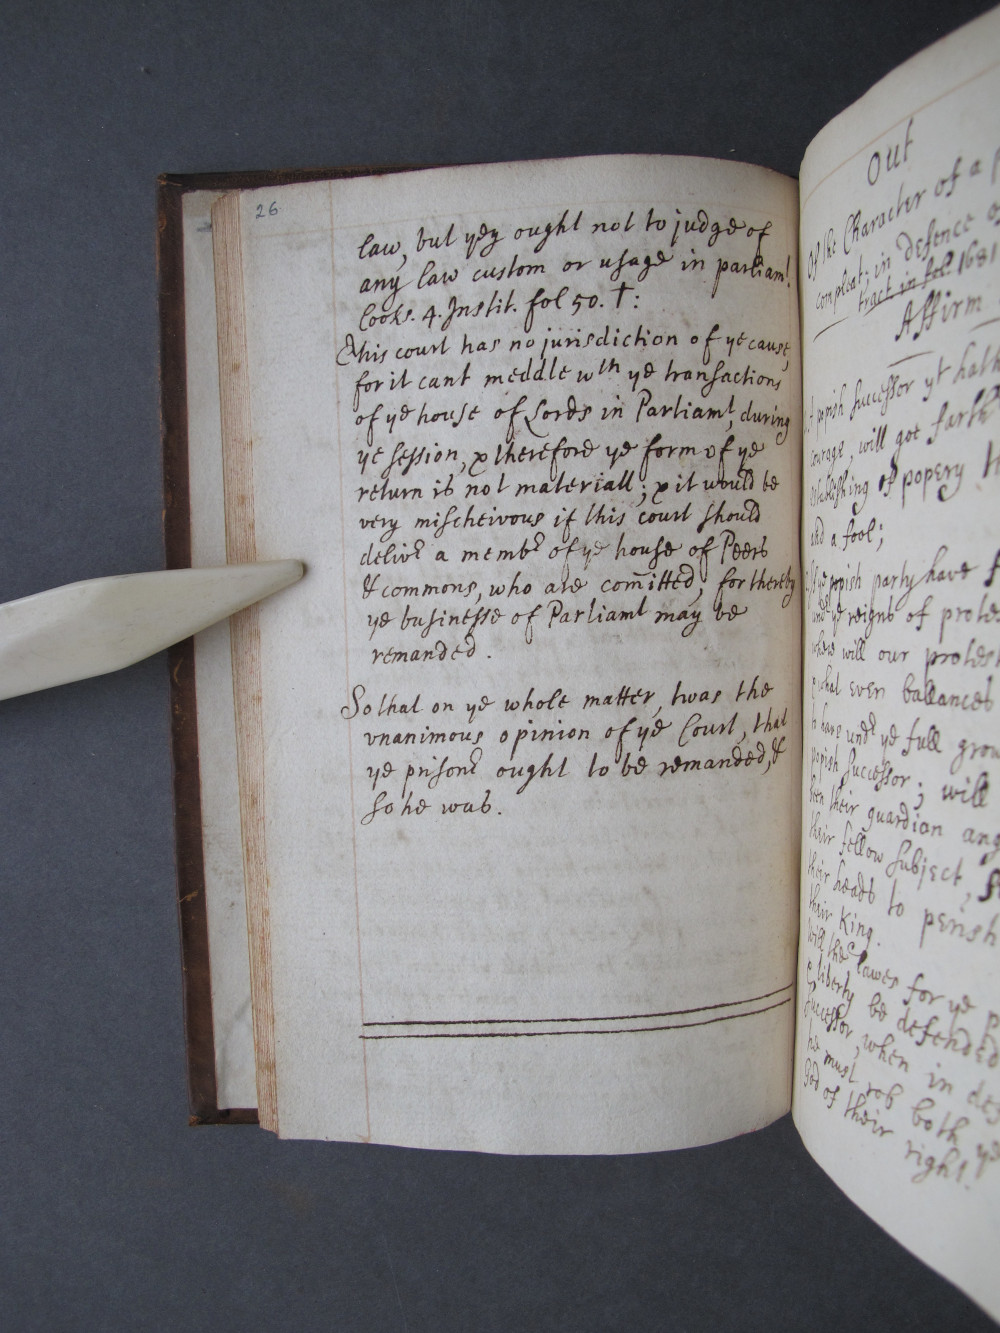 26
law, but yey ought not to judge of
any law custom or usage in parliamt.
Cooks. 4. Instit. fol 50. †:
This court has no jurisdiction of ye cause,
for it cant meddle wth ye transactions
of ye house of Lords in Parliamt, during
ye session, & therefore ye form of ye
return is not materiall; & it would be
very mischeivous if this court should
deliver a member of ye house of Peers
& commons, who are com̄itted, for thereby
ye businesse of Parliamt may be
remanded.
So that on ye whole matter, twas the
vnanimous opinion of ye Court, that
ye prisonr ought to be remanded, &
so he was.
Out
Of the Character of a
compleat; in defence
tract in fol. 1681
Affirm
popish successor yt hath
courage, will goe farth
establishing of popery
and a fool;
If ye popish party have
undr ye reigns of protes
where will our protest
what even ballances
to have undr ye full grow
popish successor; will
been their guardian ang
their fellow subject,
their heads to perish
their King.
Will the lawes for ye p
& liberty be defended
successor, when in de
he must rob both ye
God of their
right.